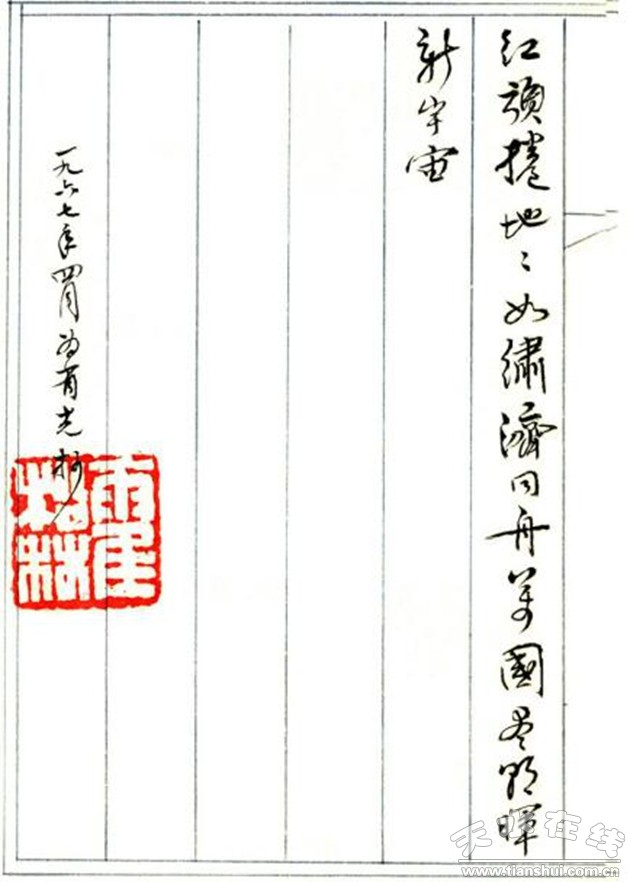 红旗捲地〻如繡濟同舟萬國尽朝暉
新宇宙
一九六七年四月为有光抄
霍松林
天水在线
www.tianshui.com.cn